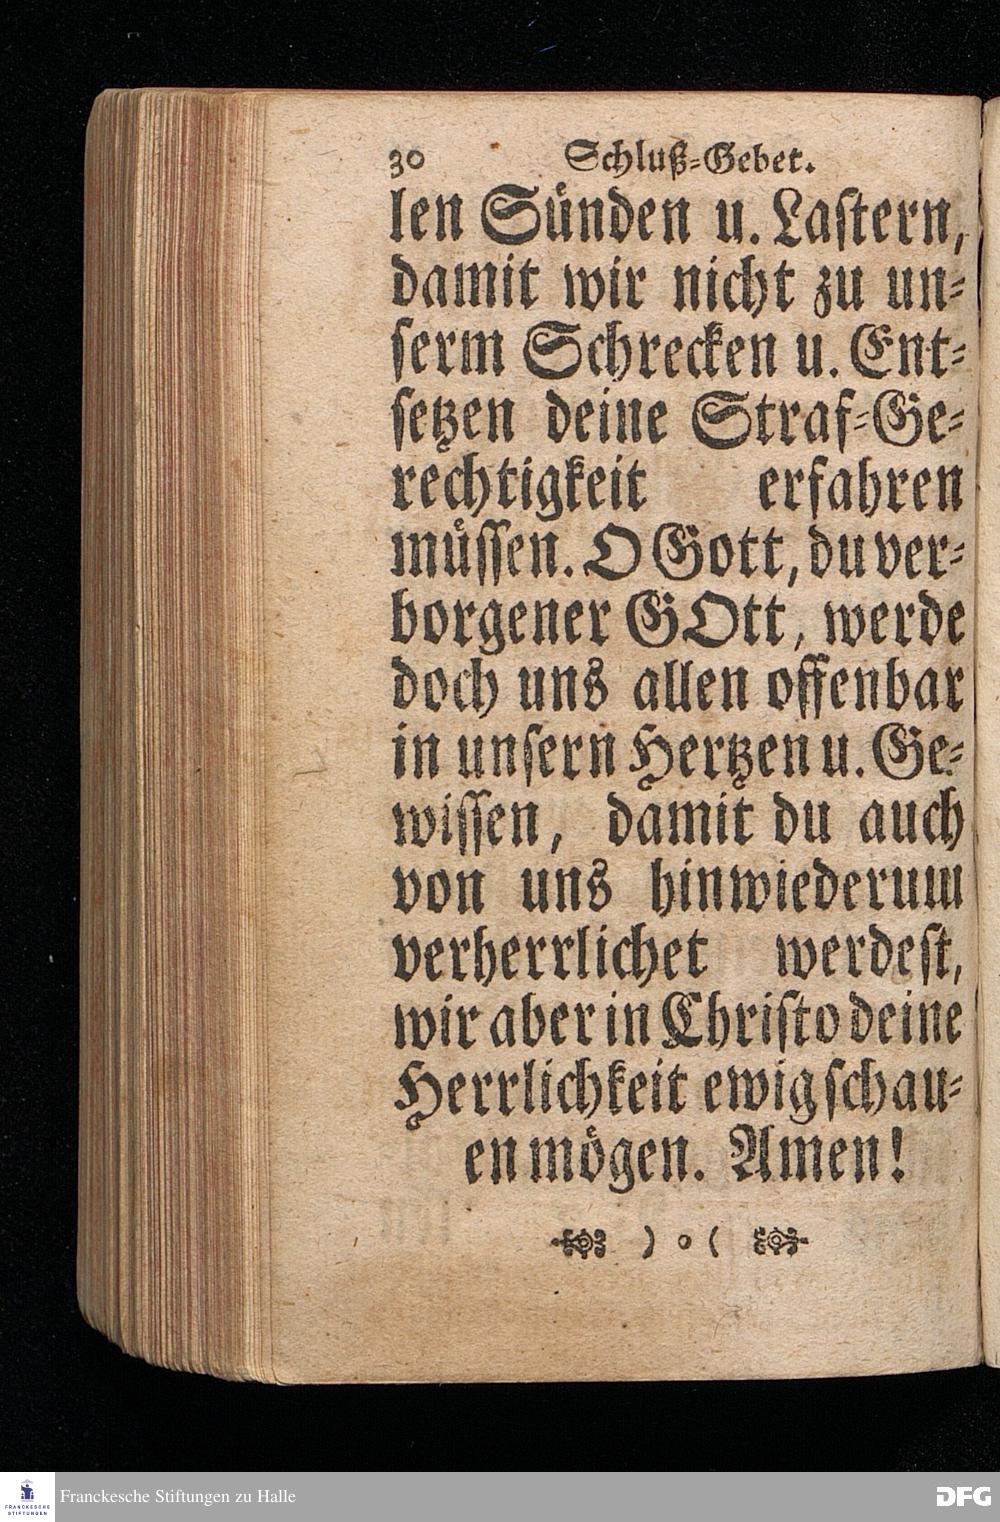 30 Schluß-Gebet.
len Sünden u. Lastern,
damit wir nicht zu un-
serm Schrecken u. Ent-
setzen deine Straf-Ge-
rechtigkeit erfahren
müssen. O Gott, du ver-
borgener GOtt, werde
doch uns allen offenbar
in unsern Hertzen u. Ge-
wissen, damit du auch
von uns hinwiederum
verherrlichet werdest,
wir aber in Christo deine
Herrlichkeit ewig schau-
en mögen. Amen!
) o (
FRANCKESCHE
STIFTUNGEN
Franckesche Stiftungen zu Halle
DFG